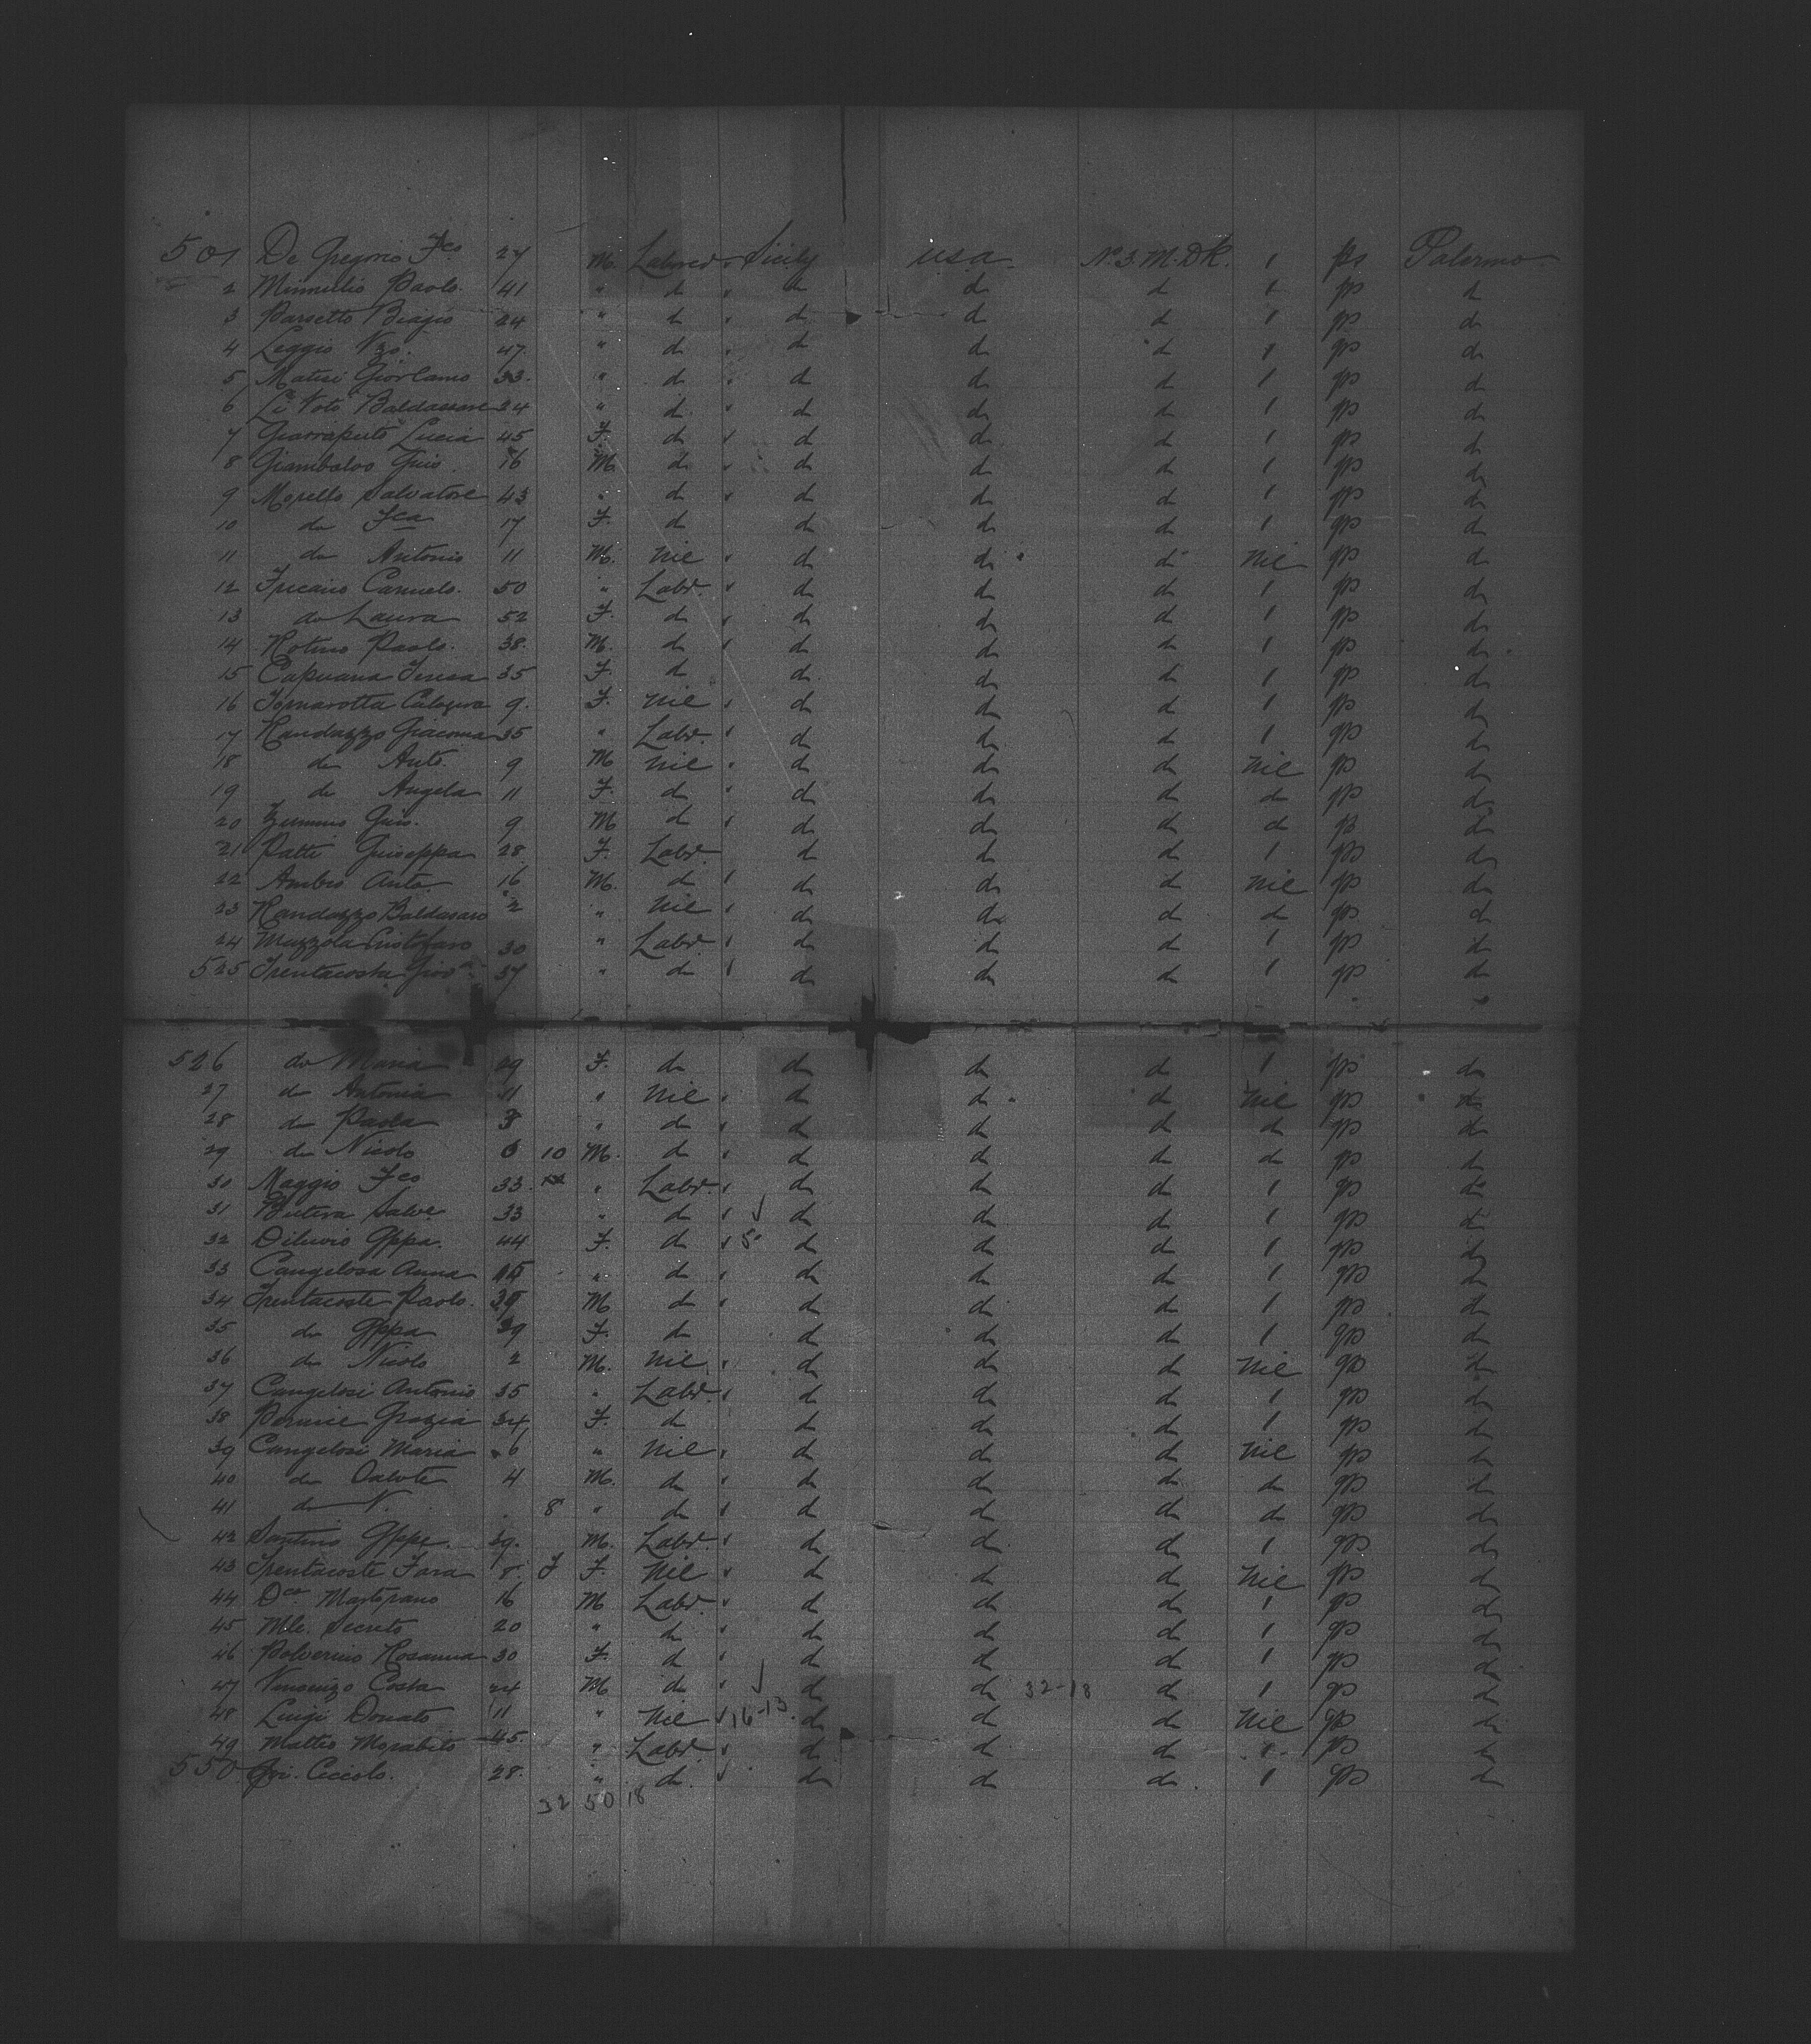 501 De Gregorio Fco 27 M. Labored " Sicily usa No 3. M. Dk. 1 ps Palermo
2 Minnulio Paolo. 41 " do " do do do 1 ps do
3 Parsetto Biagio 24 " do " do do do 1 ps do
4 Leggio Vzo. 47. " do " do do do 1 ps do
5 Matisi Giorlamo 33. " do " do do do 1 ps do
6 Li Voto Baldassare 24 " do " do do do 1 ps do
7 Giarraputo Lucia 45 F. do " do do do 1 ps do
8 Giambalvo Guis. 16 M. do " do do do 1 ps do
9 Morello Salvatore 43 " do " do do do 1 ps do
10 do Fca 17 F. do do do do 1 ps do
11 do Antonio 11 M. Nil " do do do Nil ps do
12 Carmelo. 50 " Labr. " do do do 1 ps do
13 do Laura 52 F. do " do do do 1 ps do
14 Rotino Paolo. 38. M. do " do do do 1 ps do
15 Capuana Teresa 35 F. do do do do 1 ps do
16 Tornarotta Calogera 9. F. Nil " do do do 1 ps do
17 Randazzo Giacoma 35 " Labr. " do do do 1 ps do
18 do Anto. 9 M Nil " do do do Nil ps do
19 do Angela 11 F. do " do do do do ps do
20 Zummo Guis. 9 M do " do do do do ps do
21 Patti Guiseppa 28 F. Labr. do do do 1 ps do
22 Anto. 16 M. do " do do do Nil ps do
23 Randazzo Baldasaro 2 " Nil " do do do do ps do
24 Muzzola Cristofaro 30 " Labr. " do do do 1 ps do
525 Trentacosta Giov. 37 " do " do do do 1 ps do
526 do Maria 29 F. do do do do 1 ps do
27 do Antonia 11 " Nil " do do do Nil ps do
28 do Paola 3 " do " do do do do ps do
29 do Nicolo 10 M. do " do do do do ps do
30 Maggio Fco 33. " Labr. " do do do 1 ps do
31 Butera Salve 33 " do " do do do 1 ps do
32 Diluvio Gppa. 44 F. do " 5 do do do 1 ps do
33 Cangelosa Anna " do " do do do 1 ps do
34 Trentacoste Paolo. 39 M do " do do do 1 ps do
35 do Gppa 39 F. do do do do 1 ps do
36 do Nicolo 2 M. Nil " do do do Nil ps do
37 Cangelosi Antonio 35 " Labr. " do do do 1 ps do
38 Pernice Grazia 34 F. do do do do 1 ps do
39 Cangelosi Maria 6 " Nil " do do do Nil ps do
40 do 4 M. do " do do do do ps do
41 do N. 8 " do " do do do do ps do
42 Santino Gppe. 39. M. Labr. " do do do 1 ps do
43 Trentacoste Fara 8. F F. Nil " do do do Nil ps do
44 Dco Martorano 16 M Labr. " do do do 1 ps do
45 Mle. Secreto 20 " do " do do do 1 ps do
46 Polverino Rosanna 30 F. do " do do do 1 ps do
47 Vincenzo Costa 24 M do " do do 32-18 do 1 ps do
48 Luigi Donato 11 " Nil " 16-13. do do do Nil ps do
49 Matteo Morabito 45. " Labr. " do do do 1 ps do
550 Gni. Cicciolo. 28. " do. " do do do. 1 ps do
32 50 18